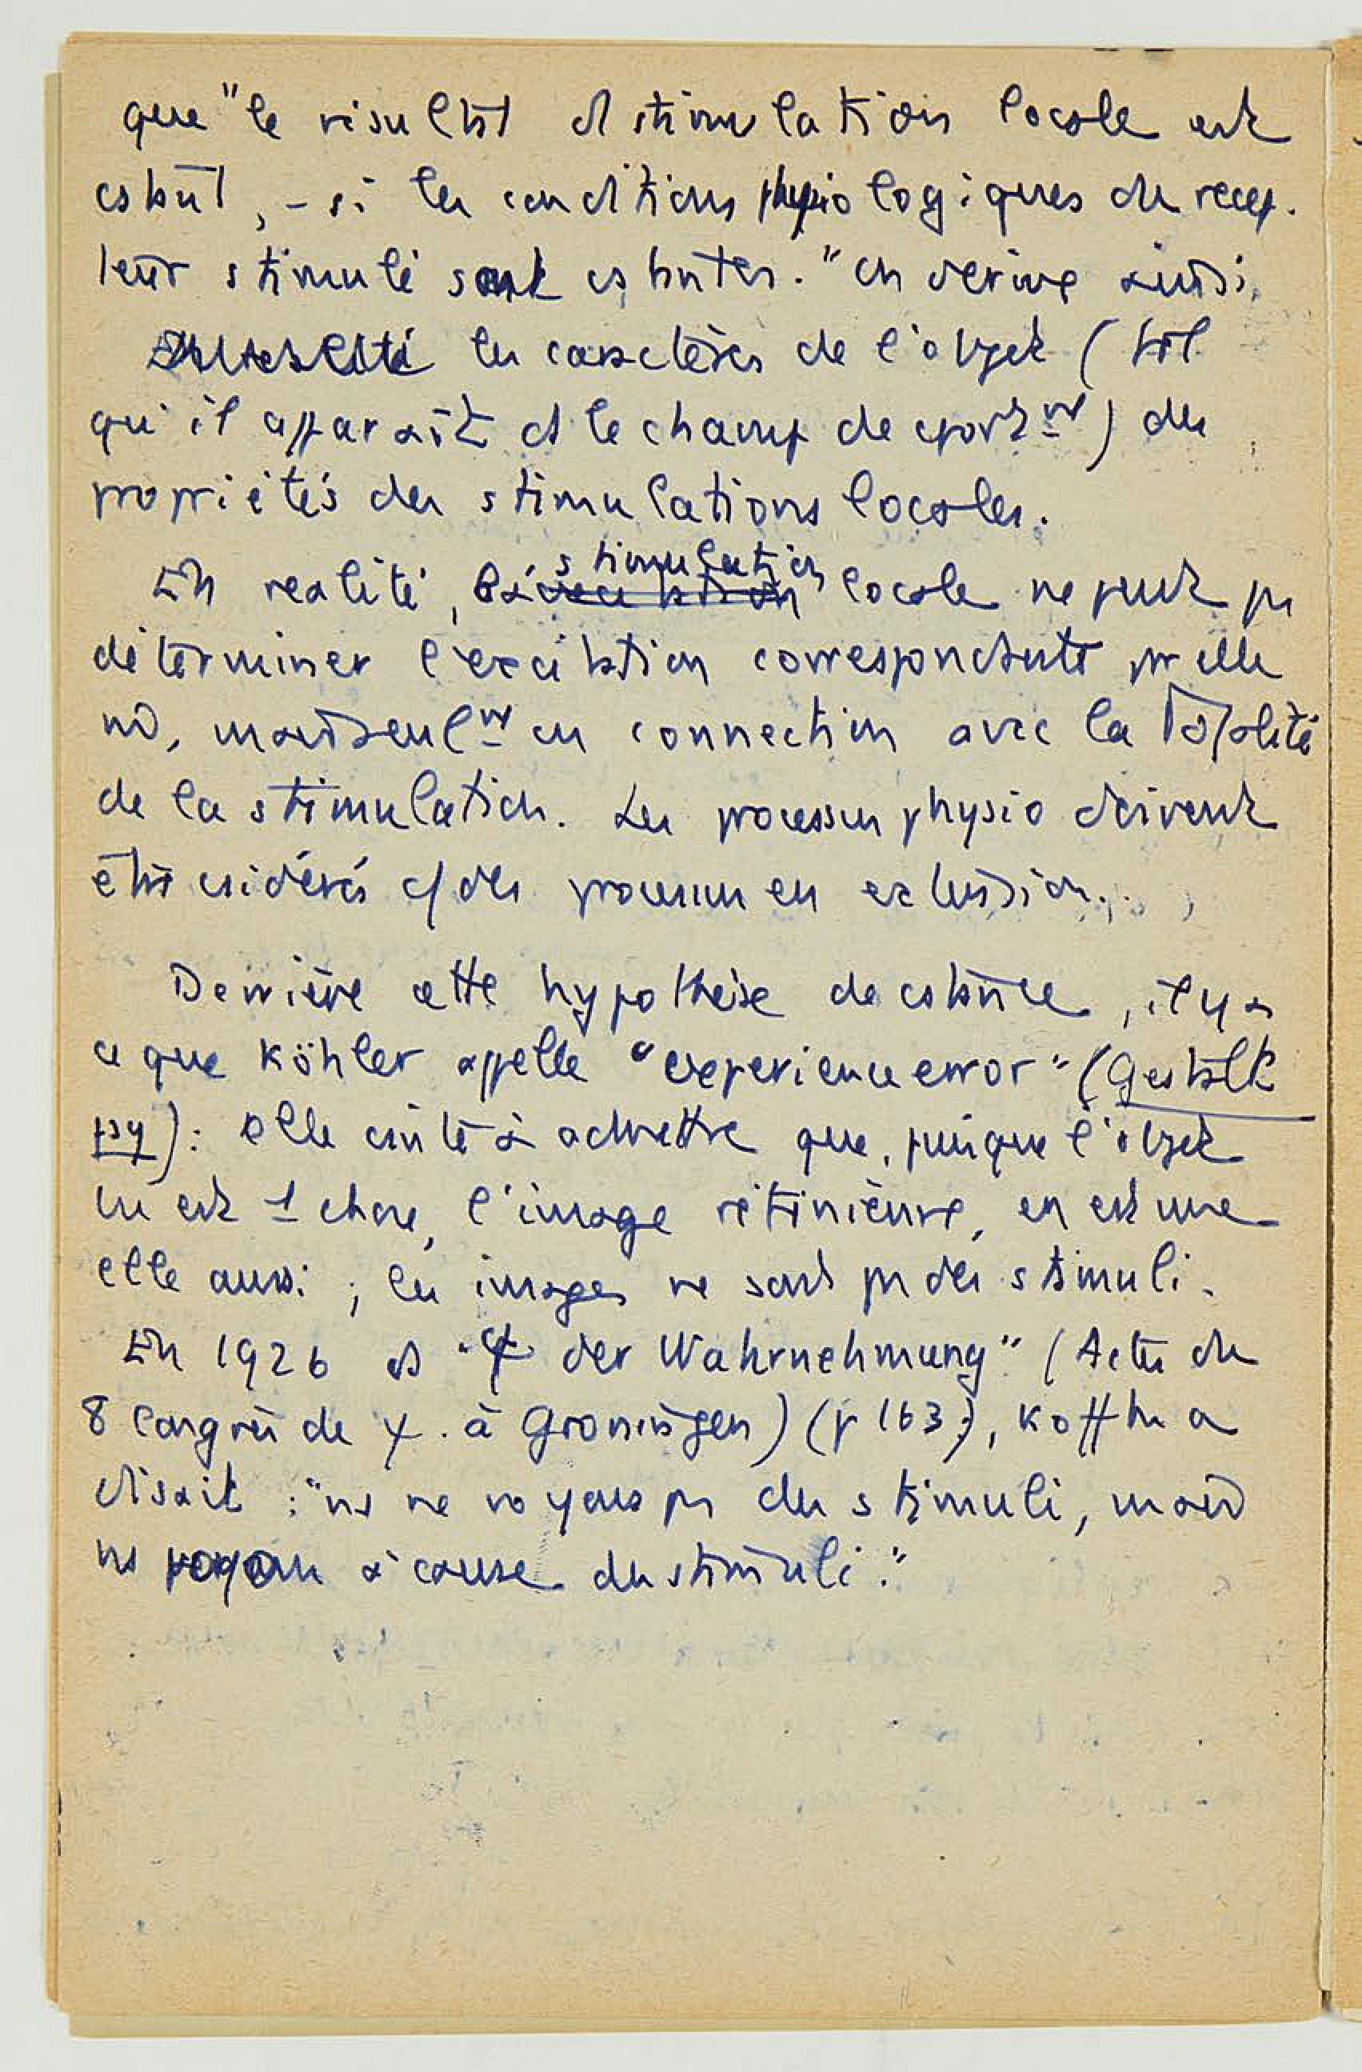 que "le résultat d stimulation locale est
cstant, - si les conditions physiologiques du recep-
teur stimulé sont cstantes." On dérive ainsi
les caractères de l'objet (tel
qu'il apparaît ds le champ de cportmt) des
propriétés des stimulations locales.
En réalité, la stimulation locale ne peut pas
déterminer l'excitation correspondante par elle
mais seulmt en connection avec la totalité
de la stimulation. Les processus physio doivent
être csidérés c/ des processus en extension.
Derrière cette hypothèse de cstance, il y a
ce que Köhler appelle "experience error" (Gestalt
psy): elle csiste à admettre que, puisque l'objet
vu est 1 chose, l'image rétinienne, en est une
elle aussi ; les images ne sont pas des stimuli.
En 1926 ds "ψ der Wahrnehmung" (Actes du
8 Congrès de ψ. à Groningen) (p 163), Koffka
disait : "ns ne voyons pas des stimuli, mais
ns voyons à cause des stimuli."